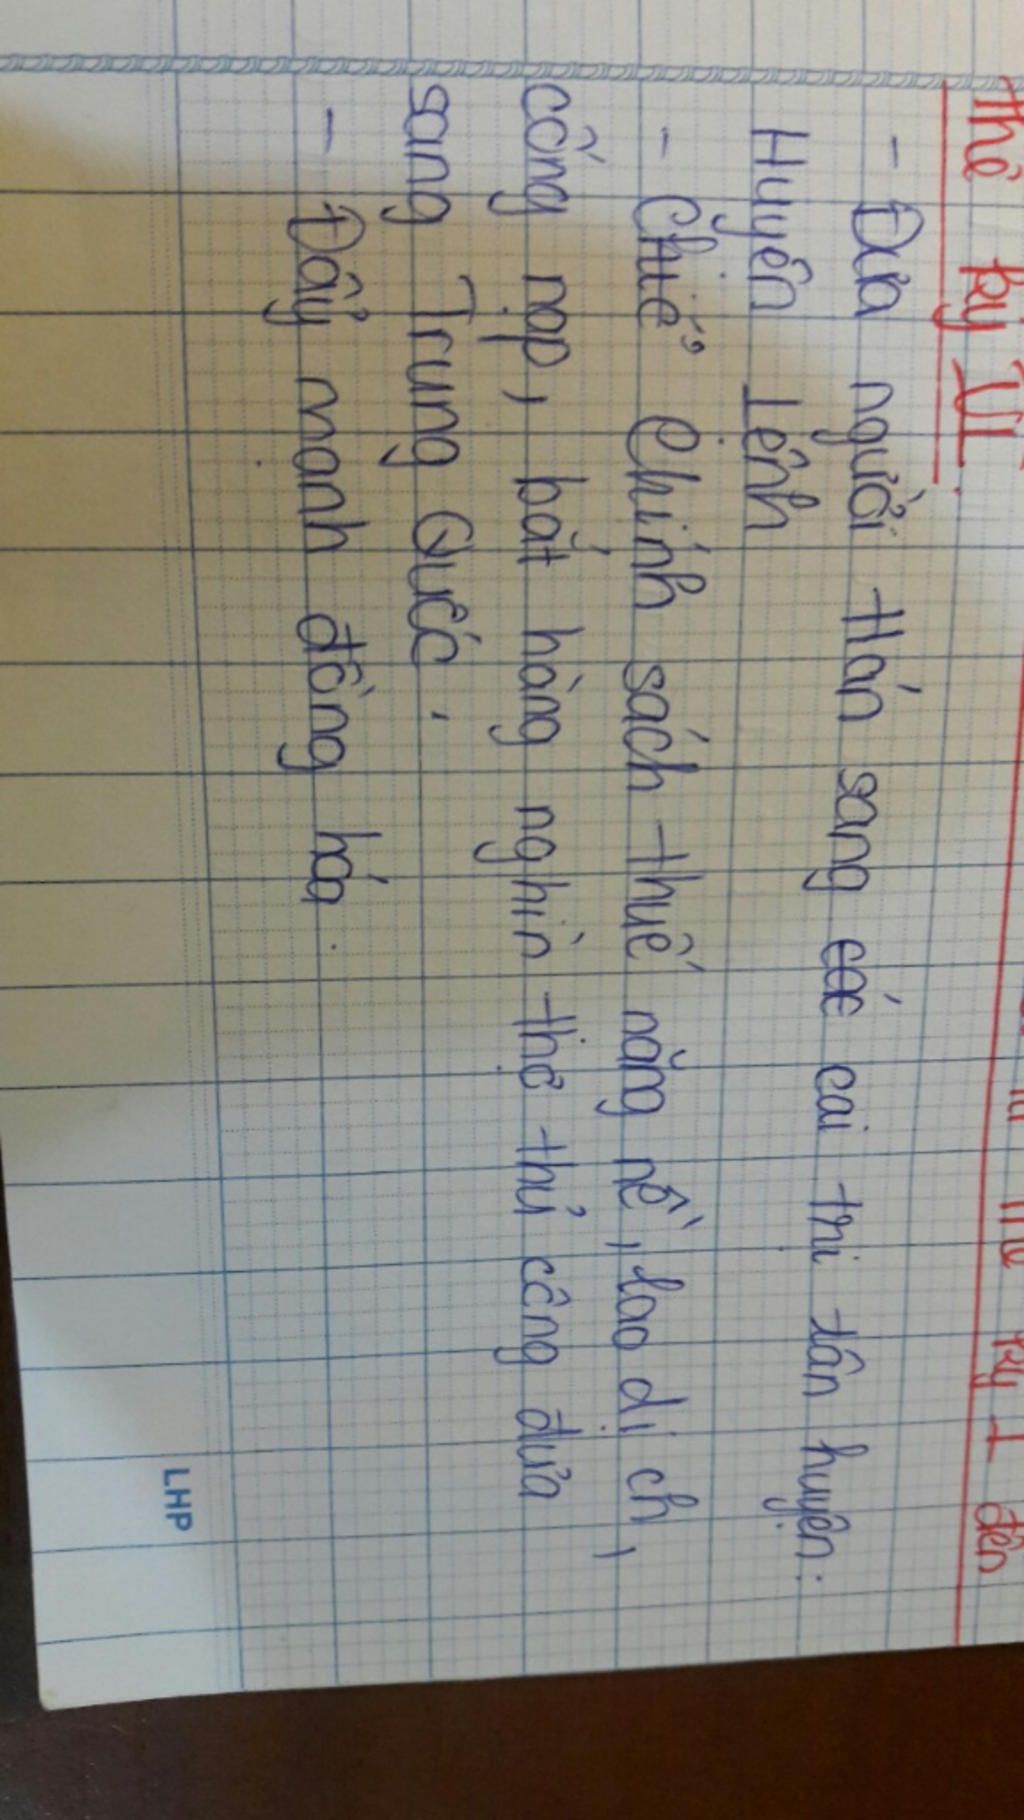 thế kỷ I đến
thế kỷ VI.
- Đưa người Hán sang các cai trị tận huyện:
Huyện lệnh
- Chiế Chính sách thuế nặng nề, lao dị ch,
cống nạp, bắt hàng nghìn thợ thủ công đưa
sang Trung Quốc.
- Đẩy mạnh đồng hóa.
LHP